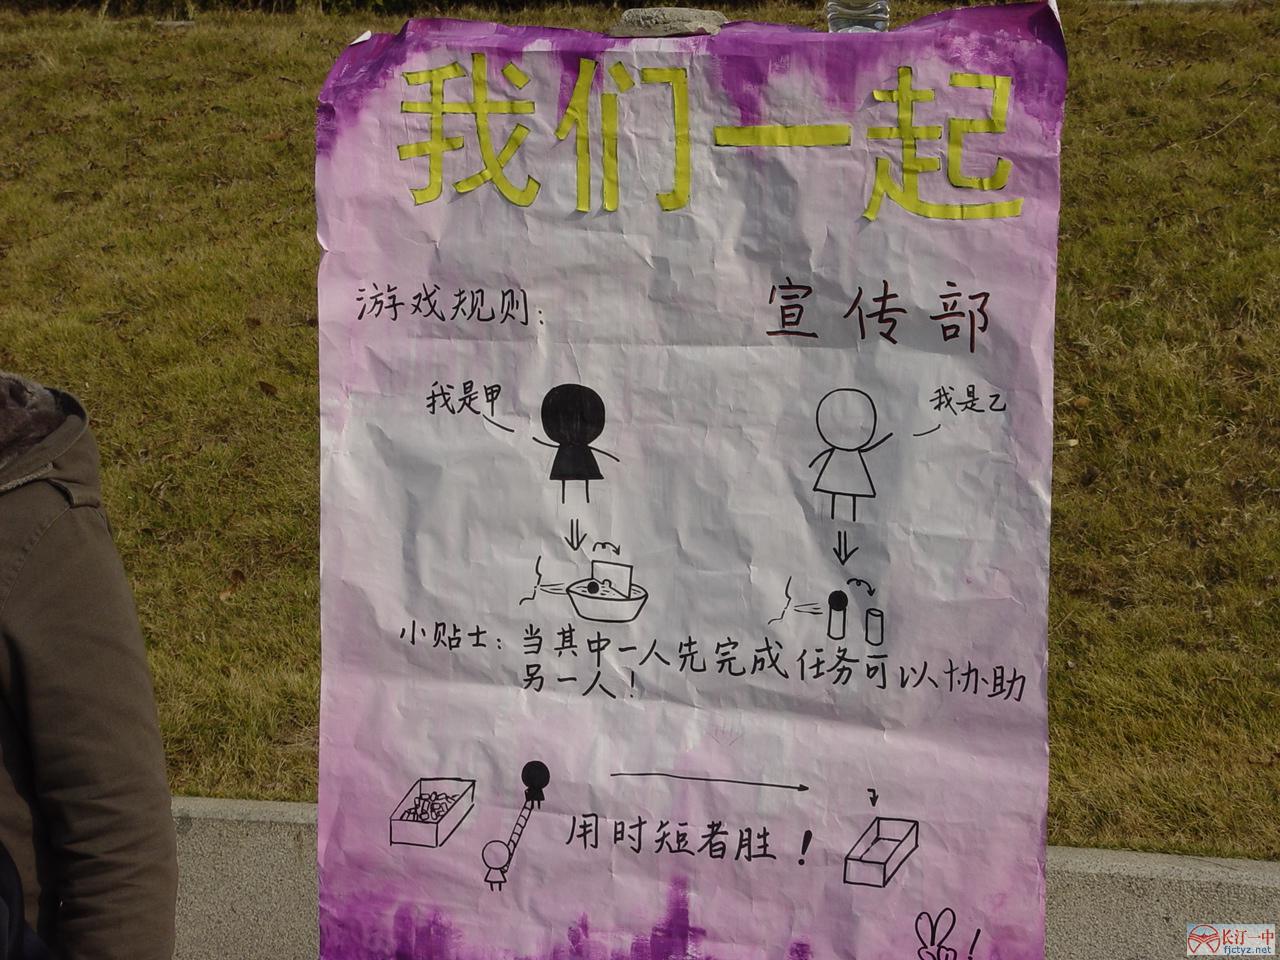 我们一起
游戏规则：
宣传部
我是甲
我是乙
小贴士：当其中一人先完成任务可以协助
另一人！
用时短者胜！
长汀一中
fjctyz.net